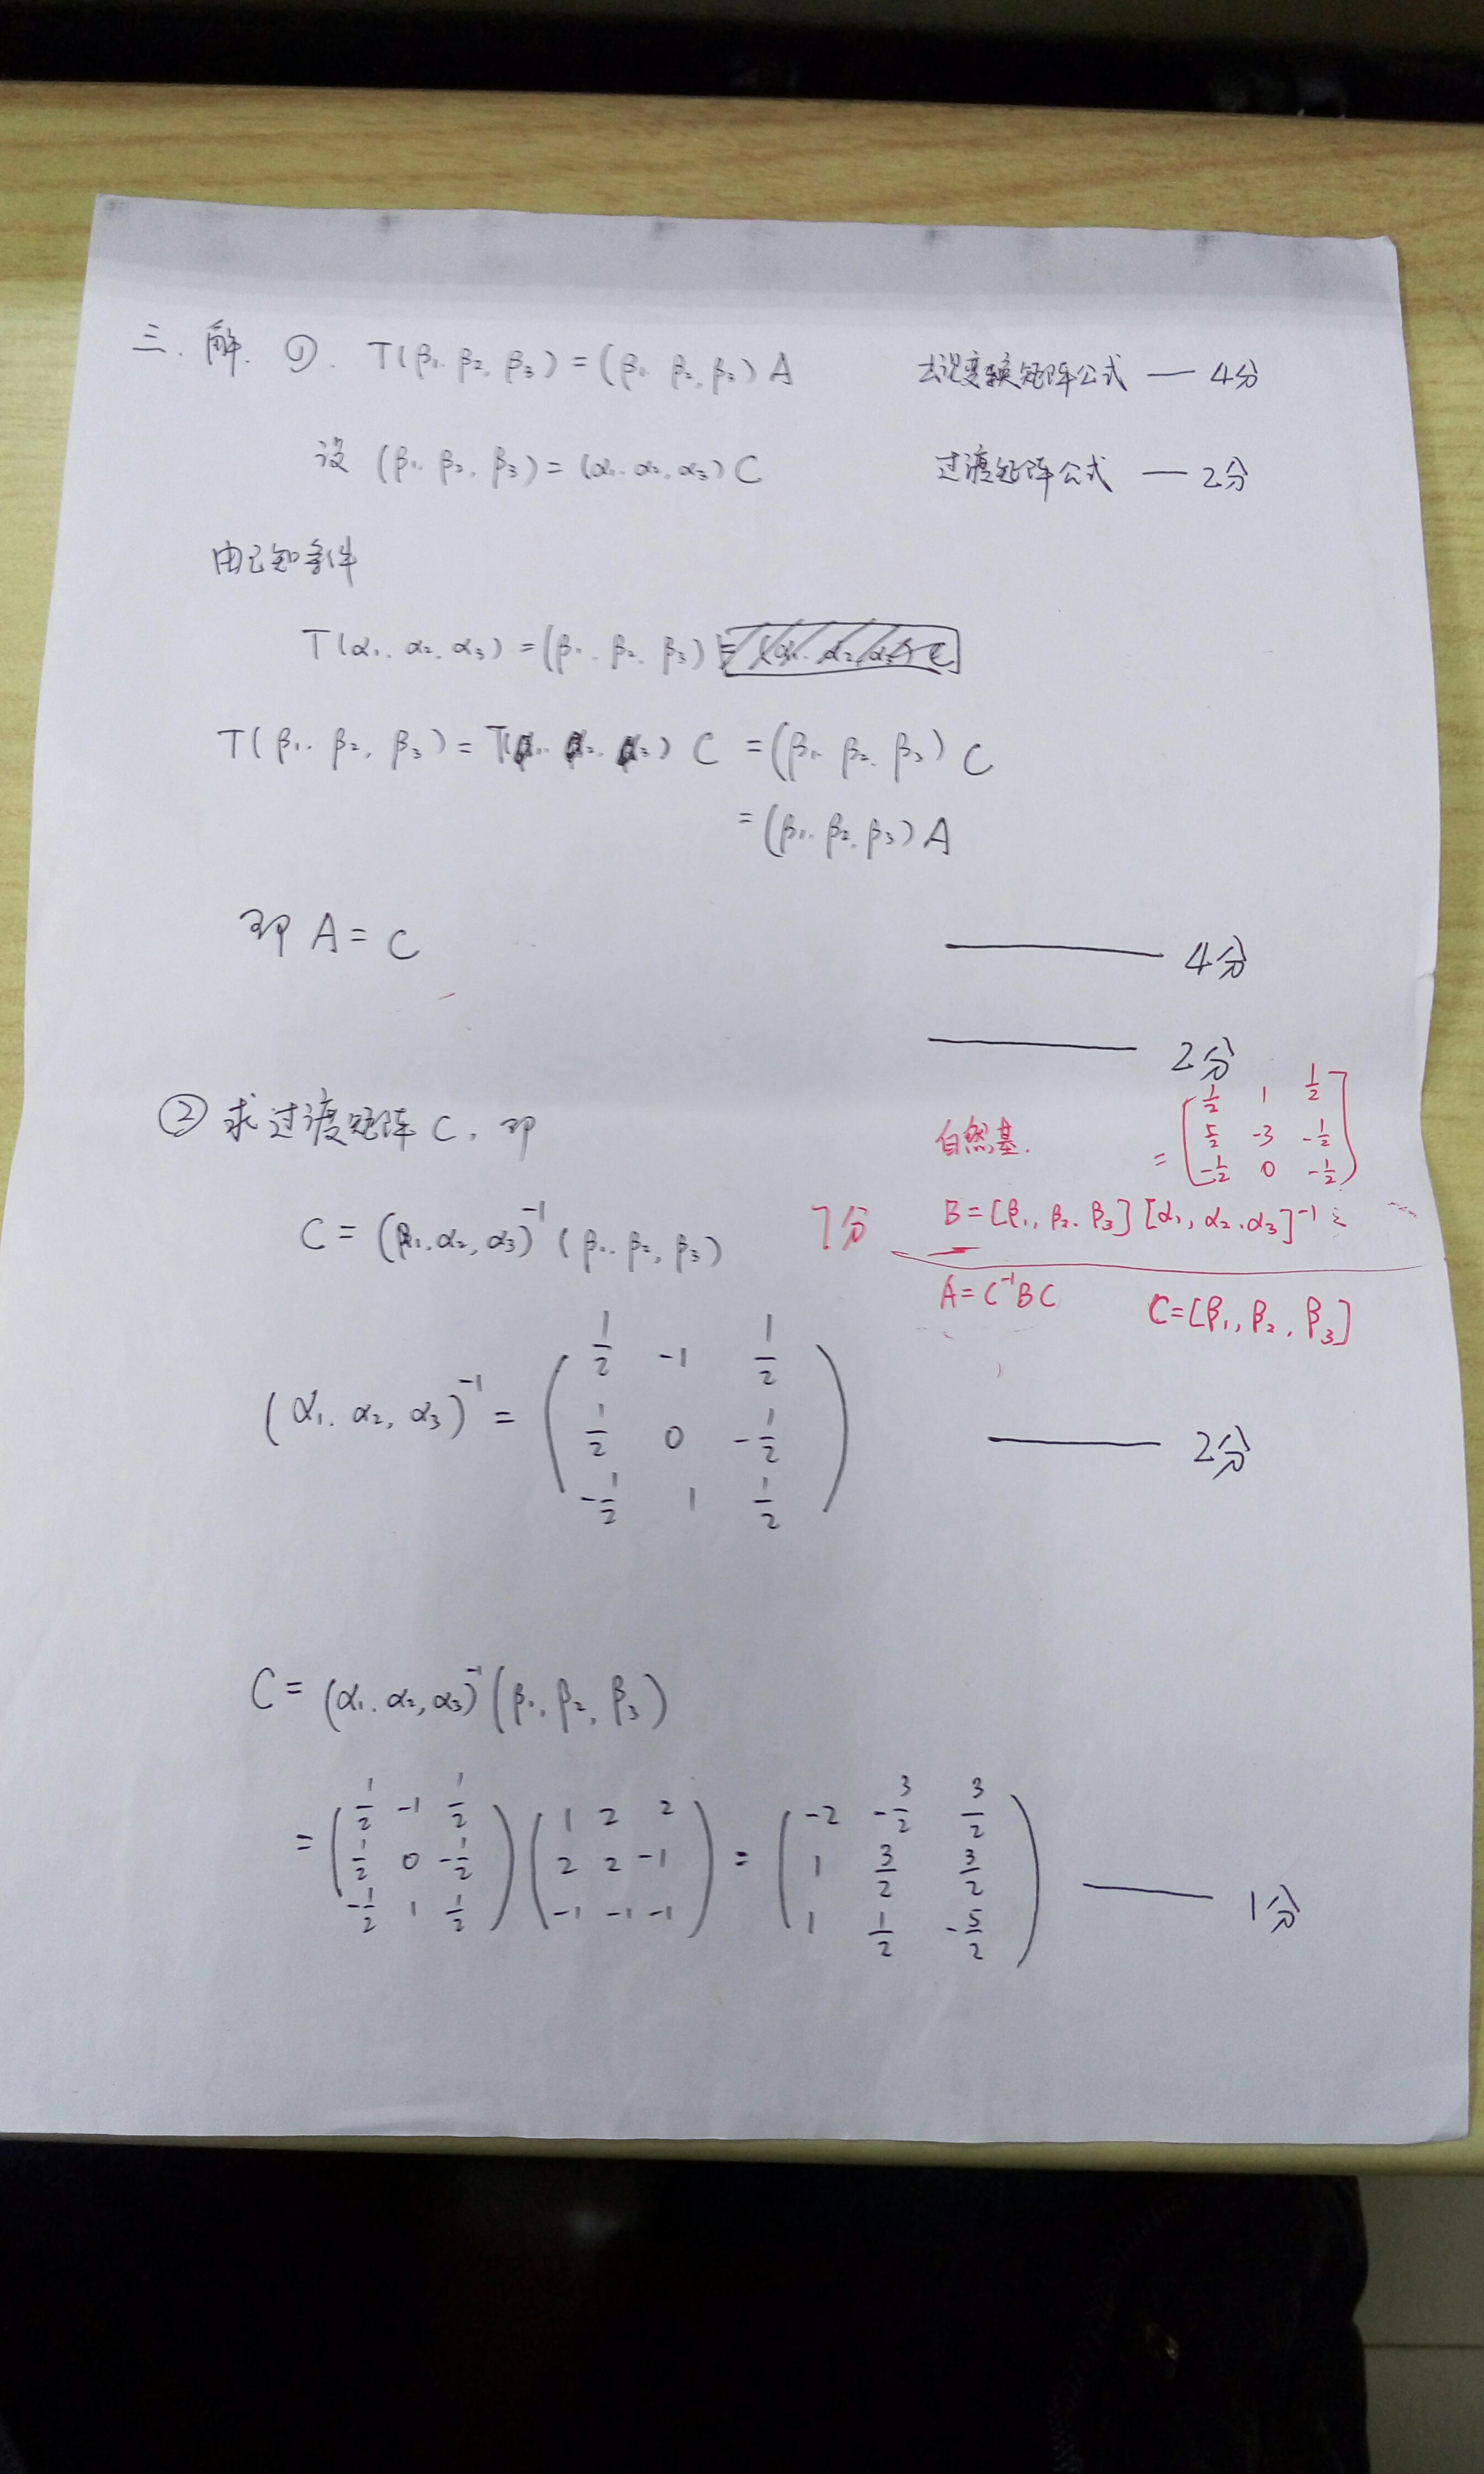 三. 解. ①. T(β₁. β₂, β₃) = (β₁. β₂, β₃) A 变换矩阵公式 — 4分
设 (β₁. β₂, β₃) = (α₁. α₂, α₃) C 过渡矩阵公式 — 2分
由已知条件
T(α₁. α₂. α₃) = (β₁. β₂. β₃)
T(β₁. β₂, β₃) = T(α₁. α₂. α₃) C = (β₁. β₂. β₃) C
= (β₁. β₂. β₃) A
即 A = C — 4分
— 2分
② 求过渡矩阵 C. 即
C = (α₁. α₂, α₃)⁻¹ (β₁. β₂, β₃) 7分
自然基.
B = [β₁, β₂. β₃] [α₁, α₂. α₃]⁻¹
= [1/2 1 1/2
5/2 -3 -1/2
-1/2 0 -1/2]
A = C⁻¹BC C = [β₁, β₂, β₃]
(α₁. α₂, α₃)⁻¹ = ( 1/2 -1 1/2
1/2 0 -1/2
-1/2 1 1/2 ) — 2分
C = (α₁. α₂, α₃)⁻¹ (β₁. β₂, β₃)
= ( 1/2 -1 1/2 ) ( 1 2 2 ) = ( -2 -3/2 3/2 )
( 1/2 0 -1/2 ) ( 2 2 -1 ) ( 1 3/2 3/2 ) — 1分
( -1/2 1 1/2 ) ( -1 -1 -1 ) ( 1 1/2 -5/2 )